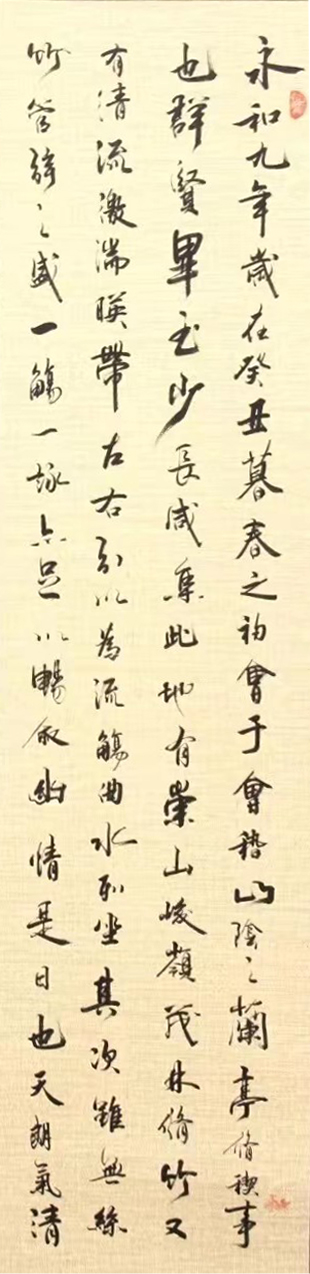 永和九年歲在癸丑暮春之初會于會稽山陰之蘭亭脩禊事
也群賢畢至少長咸集此地有崇山峻嶺茂林脩竹又
有清流激湍暎帶左右引以為流觴曲水列坐其次雖無絲
竹管絃之盛一觴一詠亦足以暢敘幽情是日也天朗氣清